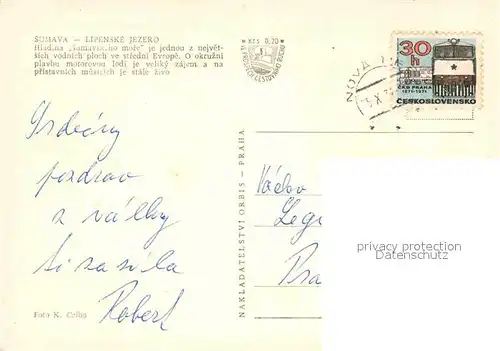 ŠUMAVA — LIPENSKÉ JEZERO
Hladina „šumavského moře" je jednou z největ-
ších vodních ploch ve střední Evropě. O okružní
plavbu motorovou lodí je veliký zájem a na
přístavních můstcích je stále živo
30
h
ČKD PRAHA
1871-1971
ČESKOSLOVENSKO
NOVÁ
Srdečný
pozdrav
z války
ti zasílá
Robert
Foto K.
NAKLADATELSTVÍ ORBIS - PRAHA
Václav
privacy protection
Datenschutz